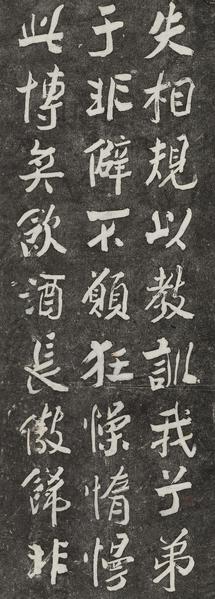 失相規以教訓我子弟
于非僻不願狂懆惰慢
此博矣飲酒長傲餙非